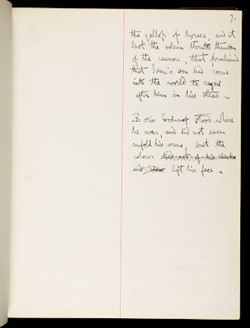 7.
the gallop of horses, and it
lost the solemn thunder
of the cannon, that proclaimed
that Ivan's son had come
into the world to reign
after him in his stead.
Boris Godunof stood where
he was, and did not even
unfold his arms, but the
colour
left his face.